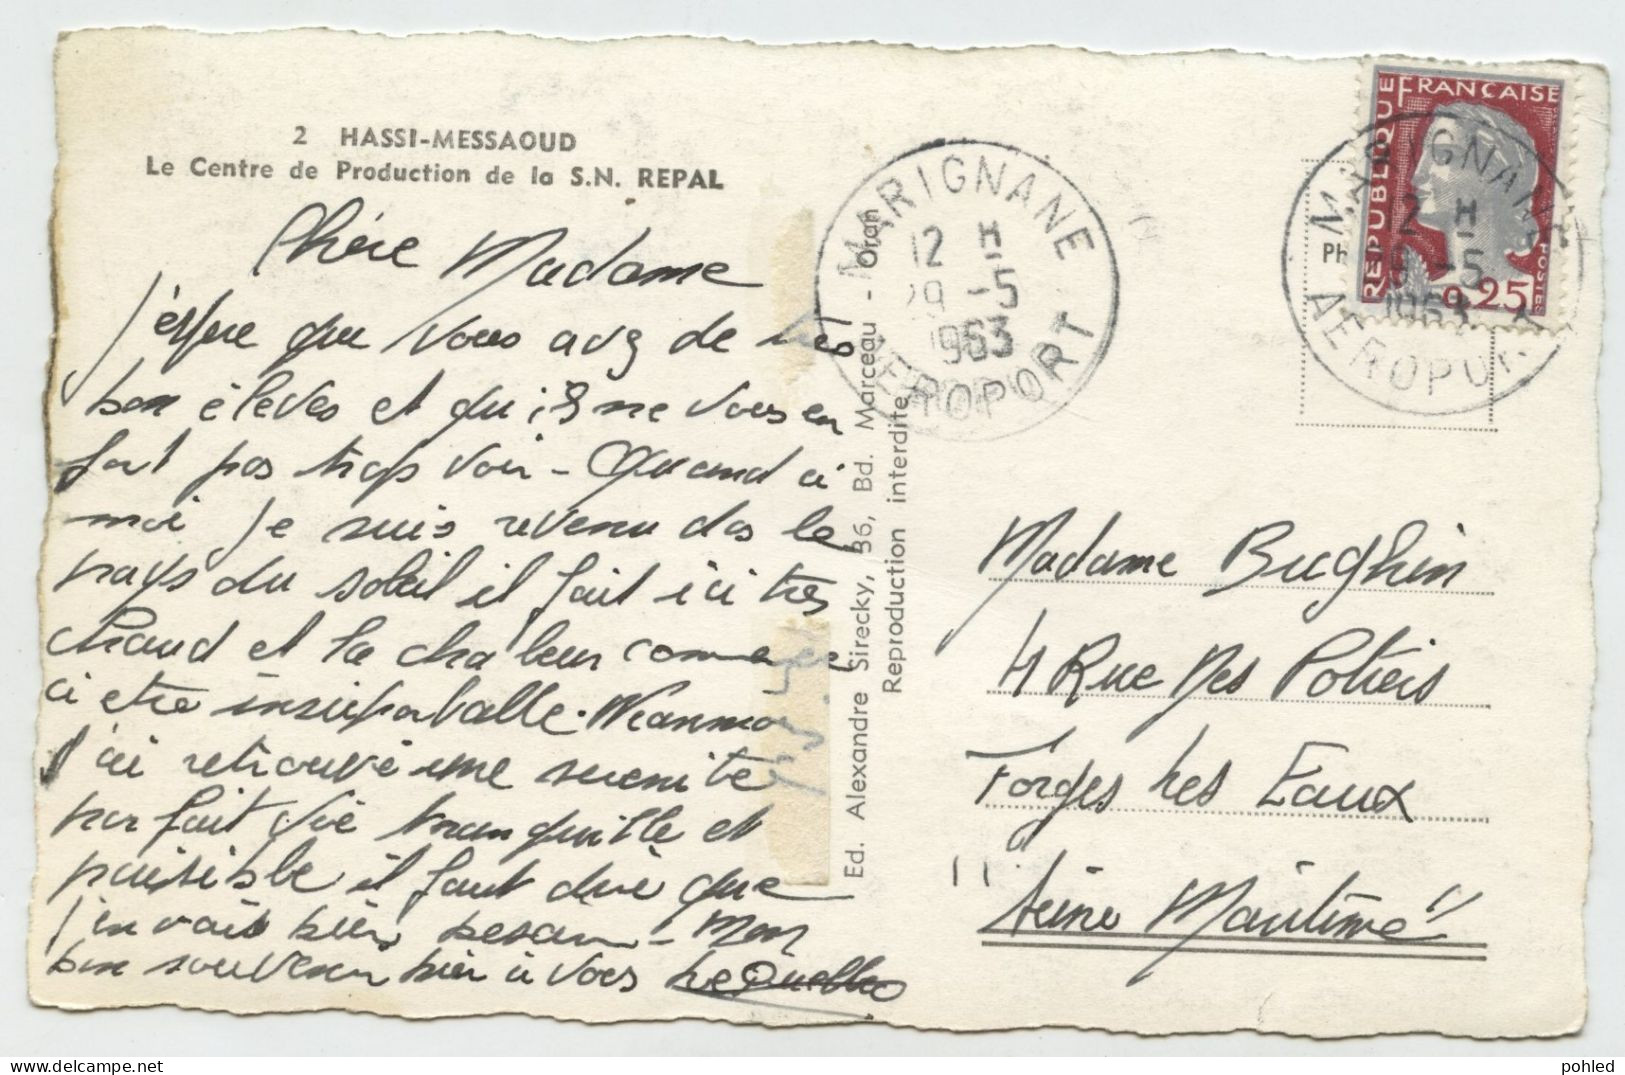 2 HASSI-MESSAOUD
Le Centre de Production de la S.N. REPAL
Chère Madame
J'espère que vous avez de très
bon élèves et qu'ils ne vous en
font pas trop voir - Quand à
moi je suis revenu ds le
pays du soleil il fait ici très
chaud et la chaleur commence
a etre insuportable. Néanmoi
J'ai retrouvé une serenité
parfait vie tranquille et
paisible il faut dire que
j'en avais bien besoin - Mon
bon souvenir bien à vous
Ed. Alexandre Sirecky, 36, Bd. Marceau - Oran
Reproduction interdite
MARIGNANE
12 H
29 -5
1963
AEROPORT
REPUBLIQUE FRANÇAISE
POSTES
0,25
MARIGNANE
12 H
29 -5
1963
AEROPORT
Ph
Madame Bughin
4 Rue Des Potiers
Forges Les Eaux
"Seine Maritime"
pohled